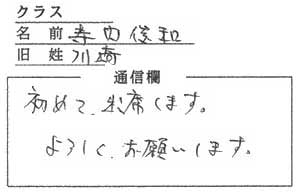 クラス
名前 寺内俊和
旧姓 川崎
通信欄
初めて、出席します。
よろしく、お願いします。